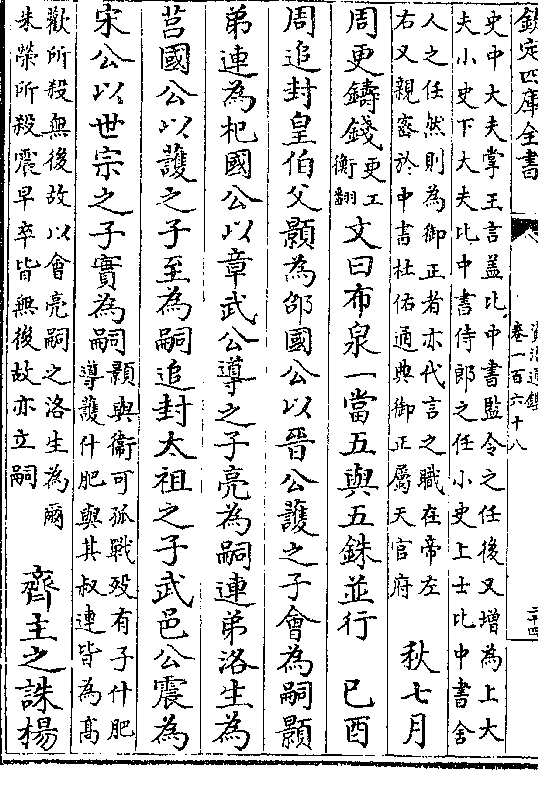 欽定四庫全書
資治通鑑
卷一百六十八
二十四
史中大夫掌王言蓋比中書監令之任後又增為上大
夫小史下大夫比中書侍郎之任小史上士比中書舍
人之任然則為御正者亦代言之職在帝左
右又親密於中書杜佑通典御正屬天官府
秋七月
周更鑄錢
更工
衡翻
文曰布泉一當五與五銖並行　己酉
周追封皇伯父顥為邵國公以晉公護之子會為嗣顥
弟連為杞國公以章武公導之子亮為嗣連弟洛生為
莒國公以護之子至為嗣追封太祖之子武邑公震為
宋公以世宗之子實為嗣
顥與衛可孤戰歿有子什肥
導護什肥與其叔連皆為髙
歡所殺無後故以會亮嗣之洛生為爾
朱榮所殺震早卒皆無後故亦立嗣
齊主之誅楊